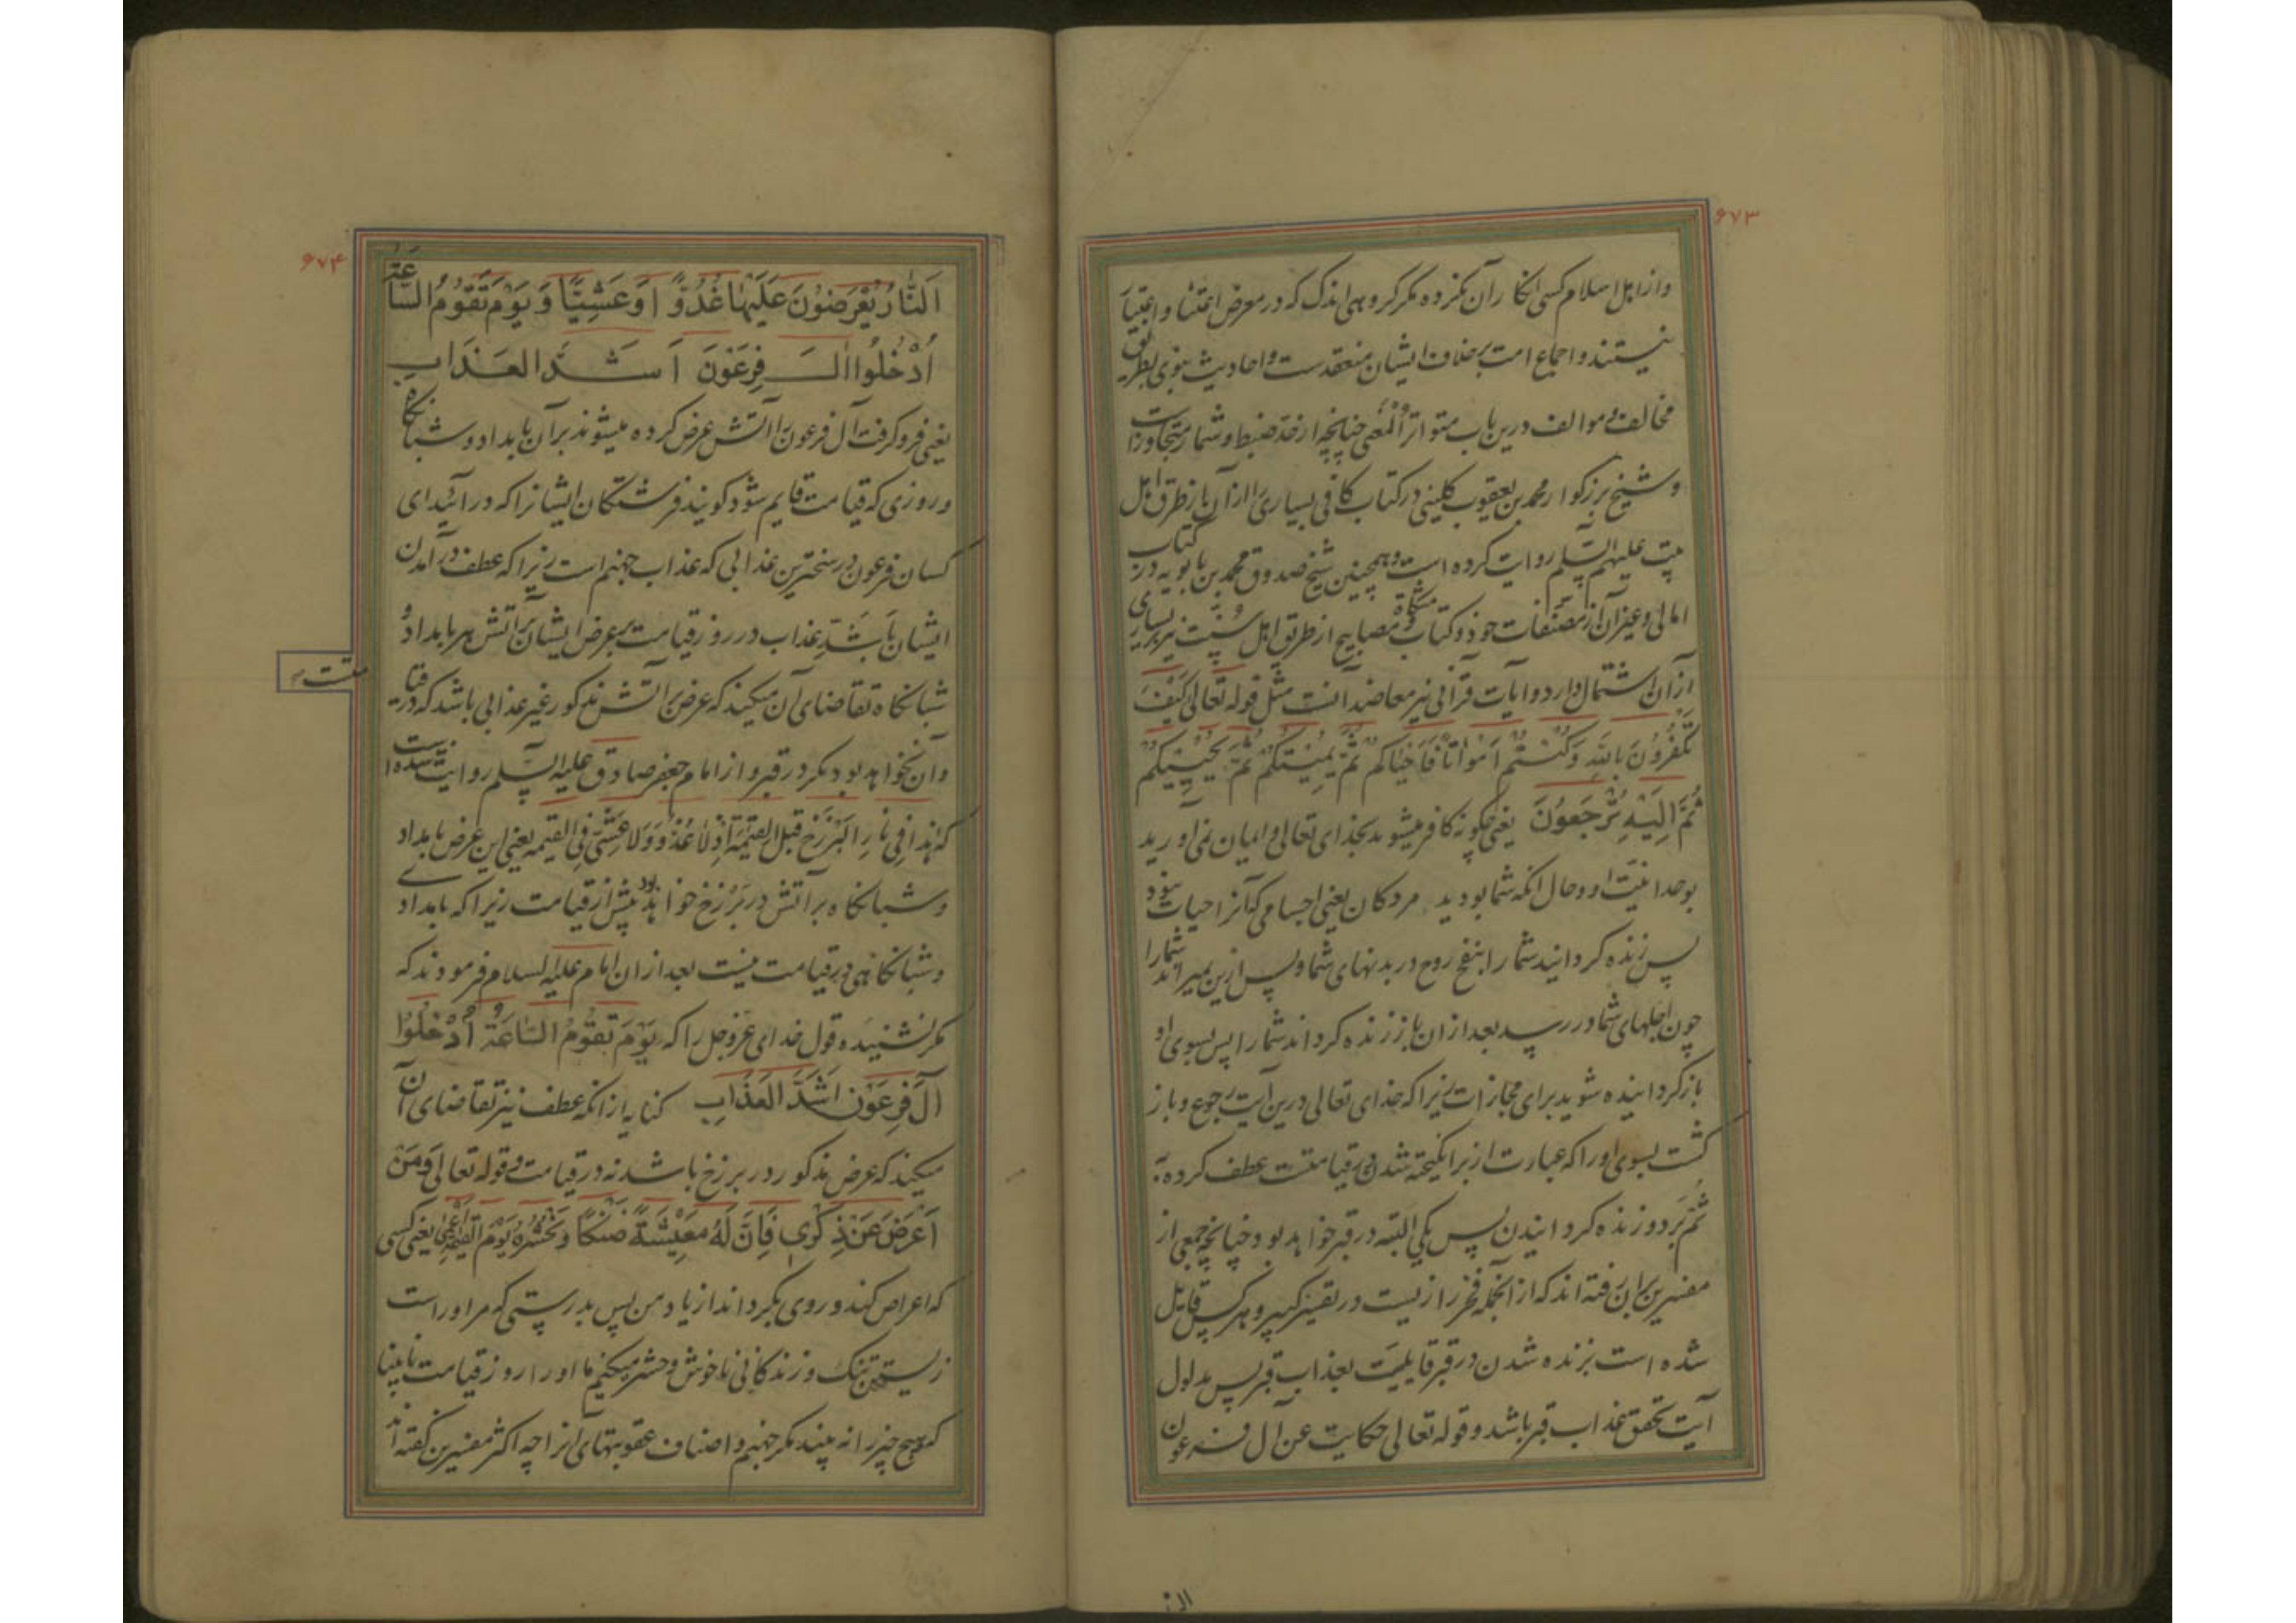 ۶۷۳
و از اهل اسلام کسی انکار آن نکرده مکر کروهی اندک که در معرض اعتنا و اعتبار
نیستند و اجماع امت بر خلاف ایشان منعقدست و احادیث نبوی بطریق
مخالف و موالف درین باب متواتر المعنی چنانچه از حد ضبط و شمار متجاوز است
و شیخ بزرکوار محمد بن یعقوب کلینی در کتاب کافی بسیاری را از آن باز طرق اهل
بیت علیهم السلم روایت کرده است و همچنین شیخ صدوق محمد بن بابویه در کتاب
امالی و غیر آن از مصنفات خود و کتاب مشکاة مصابیح از طریق اهل سنت نیز بر بسیاری
از آن اشتمال دارد و آیات قرآنی نیز معاضد آنست مثل قوله تعالی کَیْفَ
تَکْفُرُونَ بِاللهِ وَکُنْتُمْ اَمْوٰاتًا فَاَحْیٰاکُمْ ثُمَّ یُمیتُکُمْ ثُمَّ یُحْییکُمْ
ثُمَّ اِلَیْهِ تُرْجَعُونَ یعنی چکونه کافر میشوید بخدای تعالی و ایمان نمی اورید
بوحدانیت او و حال انکه شما بودید مردکان یعنی اجسامی که آنرا حیات نبود
پس زنده کردانید شما را بنفخ روح در بدنهای شما و پس ازین میراند شما را
چون اجلهای شما در رسید بعد از ان باز زنده کرداند شما را پس بسوی او
باز کردانیده شوید برای مجازات زیرا که خدای تعالی درین آیت رجوع و باز
کشت بسوی او را که عبارت از برانکیخته شدن در قیامتست عطف کرده
ثُمَّ بر دو زنده کردانیدن پس یکی البته در قبر خواهد بود چنانچه جمعی از
مفسرین بر این رفته اند که از انجمله فخر رازیست در تفسیر کبیر و هر کس قایل
شده است بزنده شدن در قبر قایلیت بعذاب قبر پس مدلول
آیت تحقق عذاب قبر باشد و قوله تعالی حکایت عن آل فرعون
۶۷۴
اَلنّٰارُ یُعْرَضُونَ عَلَیْهٰا غُدُوًّا وَعَشِیًّا وَ یَوْمَ تَقُومُ السّٰاعَةُ
اُدْخُلُوا اٰلَ فِرْعَوْنَ اَشَدَّ العَذَابِ
یعنی فرو کرفت آل فرعون را آتش عرض کرده میشوند بر آن بامداد و شبانکاه
و روزی که قیامت قایم شود کویند فرشتکان ایشانرا که در ائید ای
کسان فرعون در سختر ین عذابی که عذاب جهنم است زیرا که عطف در آمدن
ایشان باشد عذاب در روز قیامت بر عرض ایشان بر آتش هر بامداد و
شبانکاه تقاضای آن میکند که عرض آتش مذکور غیر عذابی باشد که در قیا
متست
و آن نخواهد بود مکر در قبر و از امام جعفر صادق علیه السلم روایت شده است
که هٰذا فی نٰارِ البَرْزَخ قبل القیٰمة اِذْ لا غُدُوّ وَلا عَشِیّ فی القیمه یعنی این عرض بامداد
و شبانکاه بر آتش در بَرْزَخ خواهد بود پیش از قیامت زیرا که بامدادی
و شبانکاهی در قیامت نیست بعد از ان امام علیه السلام فرمودند که
مکر نشنیده قول خدای عزوجل را که یَوْمَ تَقُومُ السّٰاعَةُ اُدْخُلُوا
آلَ فِرْعَوْنَ اَشَدَّ العَذابِ کنایه از انکه عطف نیز تقاضای آن
میکند که عرض مذکور در برزخ باشد نه در قیامت و قوله تعالی وَمَنْ
اَعْرَضَ عَنْ ذِکْری فَاِنَّ لَهُ مَعیشَةً ضَنْکًا وَ نَحْشُرُهُ یَوْمَ القِیٰمَةِ اَعْمٰی یعنی کسی
که اعراض کند و روی بکرداند از یاد من پس بدرستی که مر اوراست
زیستن تنک و زندکانی ناخوش و حشر میکنیم ما او را روز قیامت نابینا
که هیچ چیز را نه بیند مکر جهنم و اصناف عقوبتهای انرا چه اکثر مفسرین کفته اند